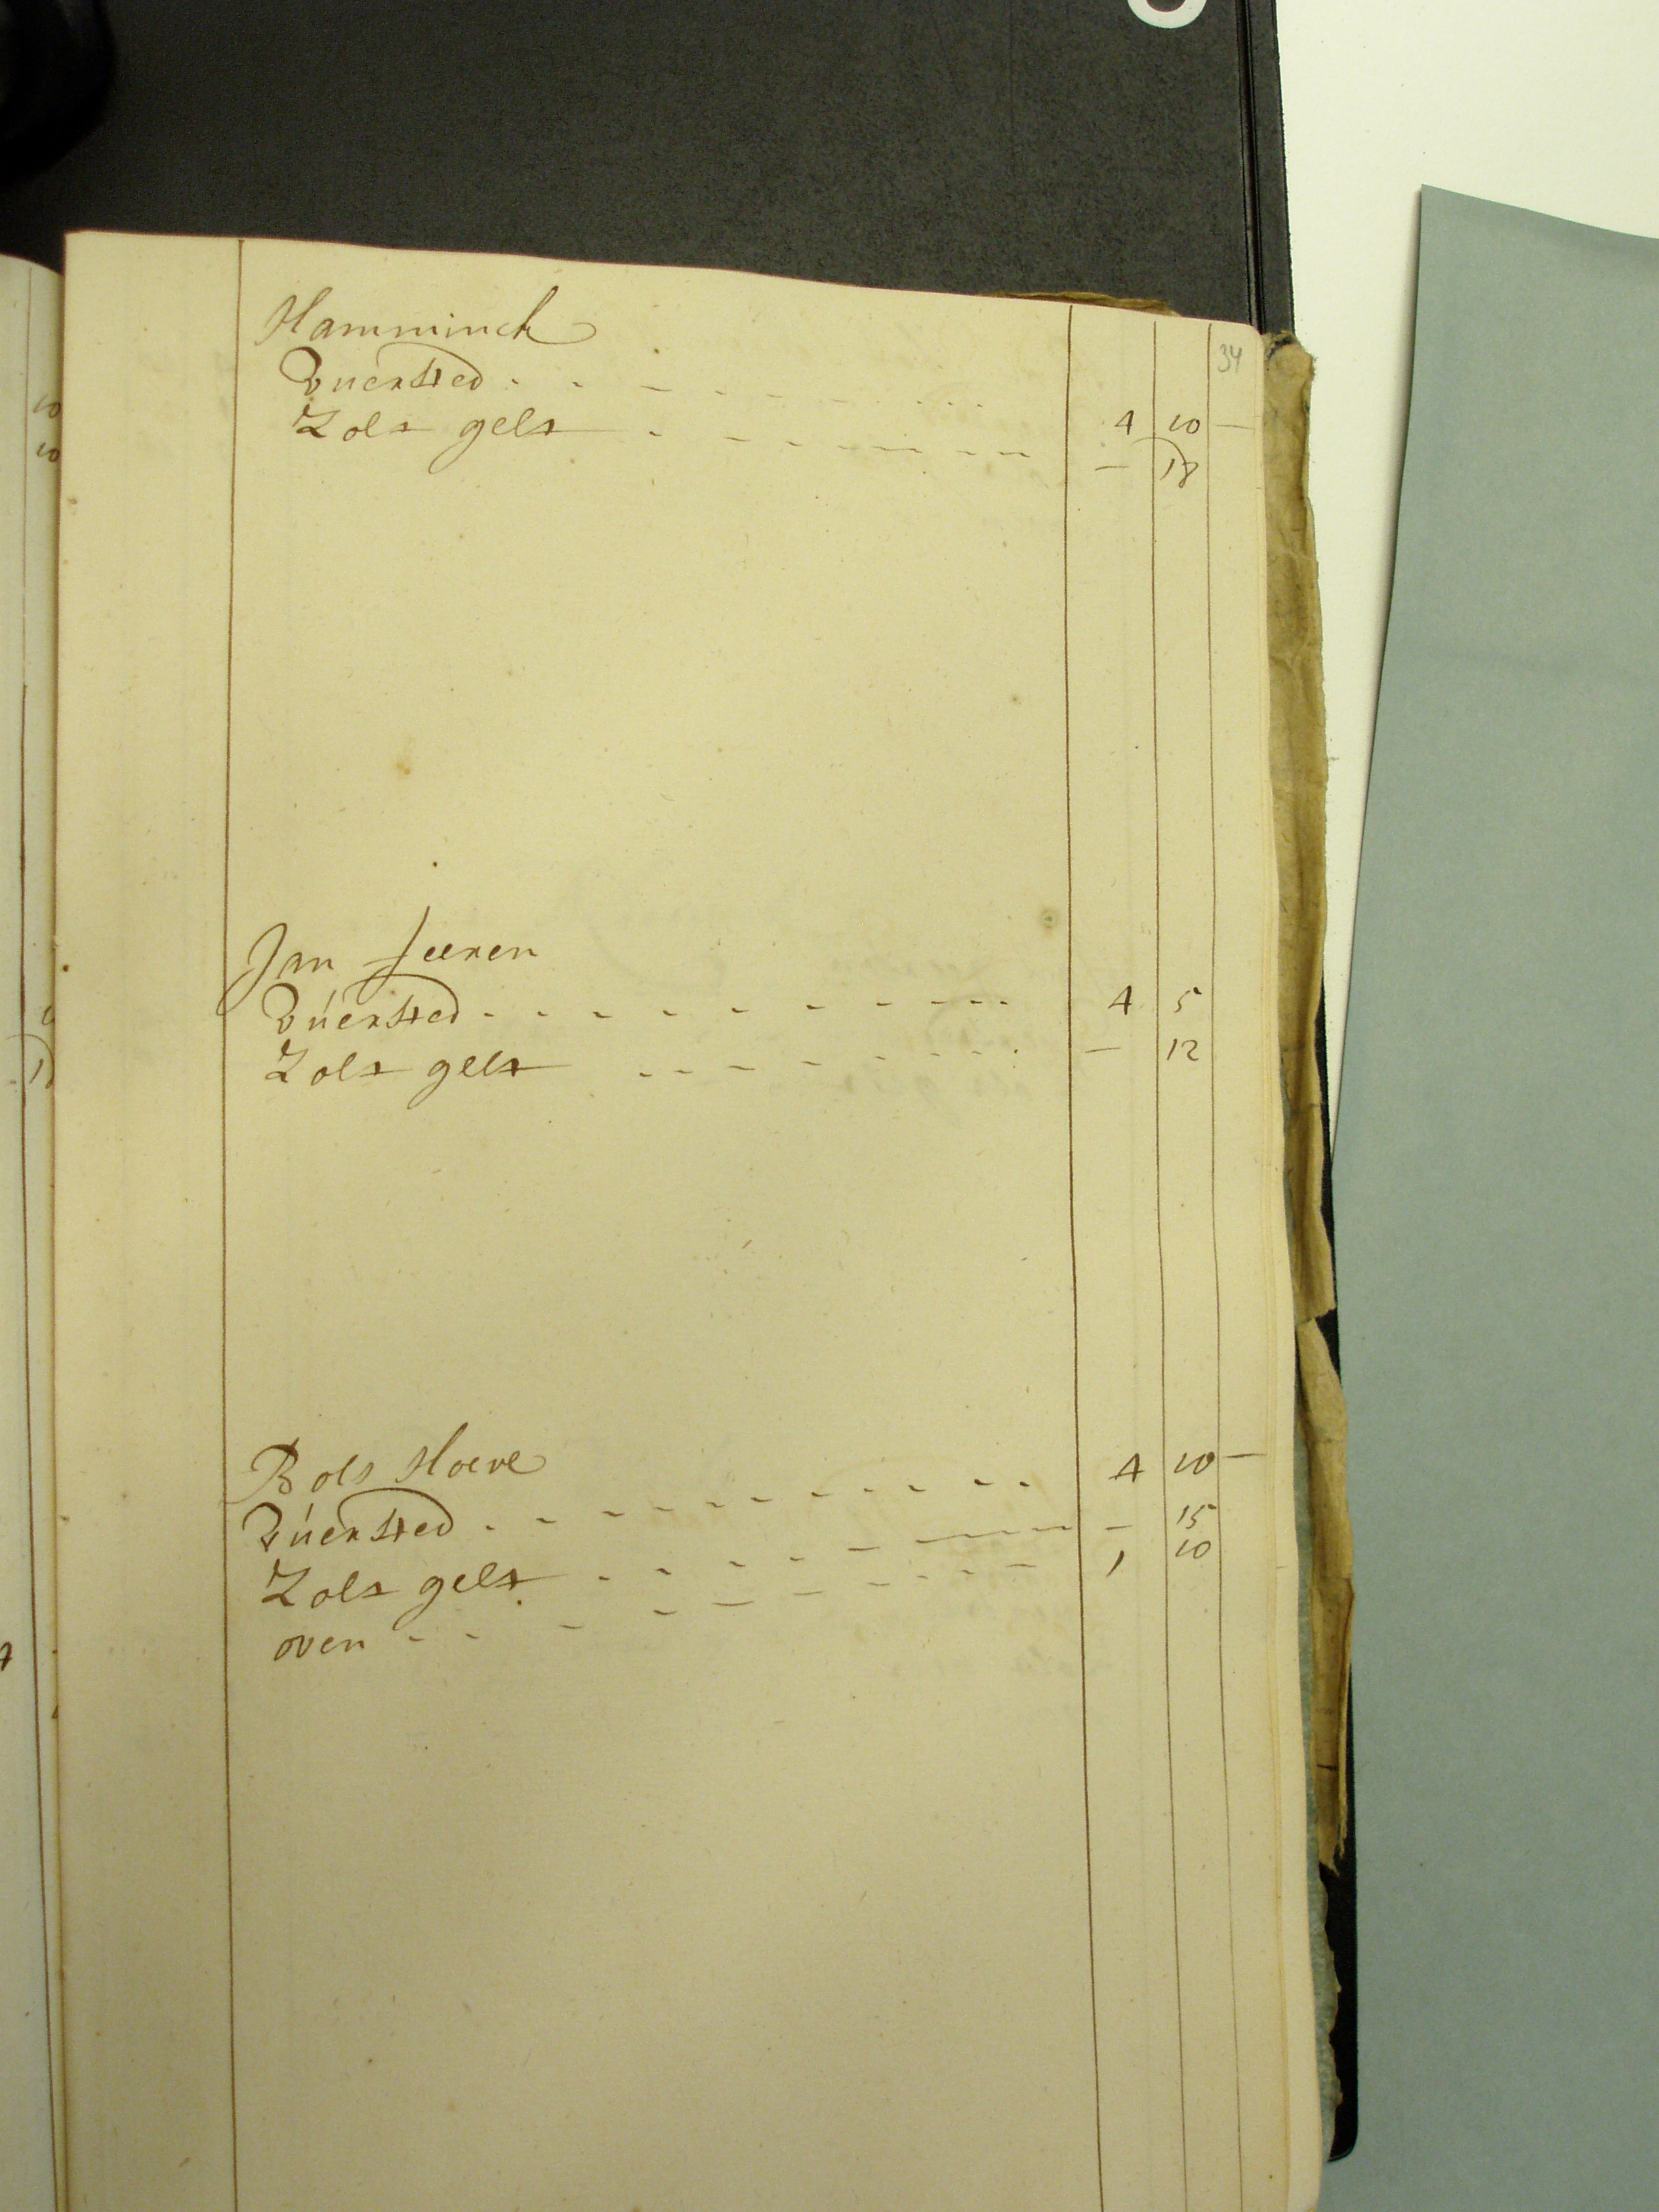 34
Hamminck
Vuersted . . - - - - - . . . 4 10 -
Zols gelt . - - - - - - - - 18
Jan seeren
Vúersted - - - - - - - - - . . 4 5
Zols gelt - - - - - - - . - 12
Bols Hoeve
Vúersted - - - - - - - - - - 4 10 -
Zols gelt - - - - - - - - - 15
oven - - - - - - - - - 1 10